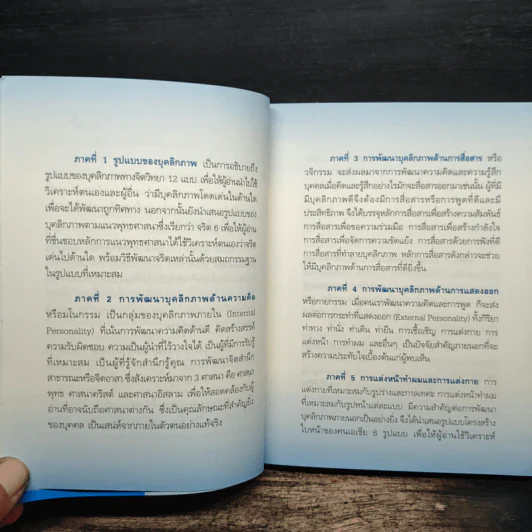 ภาคที่ 1 รูปแบบของบุคลิกภาพ เป็นการอธิบายถึง
รูปแบบของบุคลิกภาพทางจิตวิทยา 12 แบบ เพื่อให้ผู้อ่านนำไปใช้
วิเคราะห์ตนเองและผู้อื่น ว่ามีบุคลิกภาพโดดเด่นในด้านใด
เพื่อจะได้พัฒนาถูกทิศทาง นอกจากนั้นยังนำเสนอรูปแบบของ
บุคลิกภาพตามแนวพุทธศาสนาซึ่งเรียกว่า จริต 6 เพื่อให้ผู้อ่าน
ที่ชื่นชอบหลักการแนวพุทธศาสนาได้ใช้วิเคราะห์ตนเองว่าจริต
เด่นไปด้านใด พร้อมวิธีพัฒนาจริตเหล่านั้นด้วยสมถกรรมฐาน
ในรูปแบบที่เหมาะสม
ภาคที่ 2 การพัฒนาบุคลิกภาพด้านความคิด
หรือมโนกรรม เป็นกลุ่มของบุคลิกภาพภายใน (Internal
Personality) ที่เน้นการพัฒนาความคิดด้านดี คิดสร้างสรรค์
ความรับผิดชอบ ความเป็นผู้นำที่ไว้วางใจได้ เป็นผู้ที่มีการรับรู้
ที่เหมาะสม เป็นผู้ที่รู้จักสำนึกรู้คุณ การพัฒนาจิตสำนึก
สาธารณะหรือจิตอาสา ซึ่งสังเคราะห์มาจาก 3 ศาสนา คือ ศาสนา
พุทธ ศาสนาคริสต์ และศาสนาอิสลาม เพื่อให้สอดคล้องกับผู้
อ่านที่อาจนับถือศาสนาต่างกัน ซึ่งเป็นคุณลักษณะที่สำคัญยิ่ง
ของบุคคล เป็นเสน่ห์จากภายในตัวตนอย่างแท้จริง
ภาคที่ 3 การพัฒนาบุคลิกภาพด้านการสื่อสาร หรือ
วจีกรรม จะส่งผลมาจากการพัฒนาความคิดและความรู้สึก
บุคคลเมื่อคิดและรู้สึกอย่างไรมักจะสื่อสารออกมาเช่นนั้น ผู้ที่มี
มีบุคลิกภาพดีจึงต้องมีการสื่อสารหรือการพูดที่ดีและมี
ประสิทธิภาพ จึงได้บรรจุหลักการสื่อสารเพื่อสร้างความสัมพันธ์
การสื่อสารเพื่อขอความร่วมมือ การสื่อสารเพื่อสร้างกำลังใจ
การสื่อสารเพื่อจัดการความขัดแย้ง การสื่อสารด้วยการฟังที่ดี
การสื่อสารที่ทำลายบุคลิกภาพ หลักการสื่อสารดังกล่าวจะช่วย
ให้มีบุคลิกภาพด้านการสื่อสารที่ดียิ่งขึ้น
ภาคที่ 4 การพัฒนาบุคลิกภาพด้านการแสดงออก
หรือกายกรรม เมื่อคนเราพัฒนาความคิดและการพูด ก็จะส่ง
ผลต่อการกระทำที่แสดงออก (External Personality) ทั้งกิริยา
ท่าทาง ท่านั่ง ท่าเดิน ท่ายืน การเชื้อเชิญ การแต่งกาย การ
แต่งหน้า การทำผม และอื่นๆ เป็นปัจจัยสำคัญภายนอกที่จะ
สร้างความประทับใจเบื้องต้นแก่ผู้พบเห็น
ภาคที่ 5 การแต่งหน้าทำผมและการแต่งกาย การ
แต่งกายที่เหมาะสมกับรูปร่างและกาลเทศะ การแต่งหน้าทำผม
ที่เหมาะสมกับรูปหน้าแต่ละแบบ มีความสำคัญต่อการพัฒนา
บุคลิกภาพภายนอกเป็นอย่างยิ่ง จึงได้นำเสนอรูปแบบโครงสร้าง
ใบหน้าของคนเอเชีย 6 รูปแบบ เพื่อให้ผู้อ่านใช้วิเคราะห์